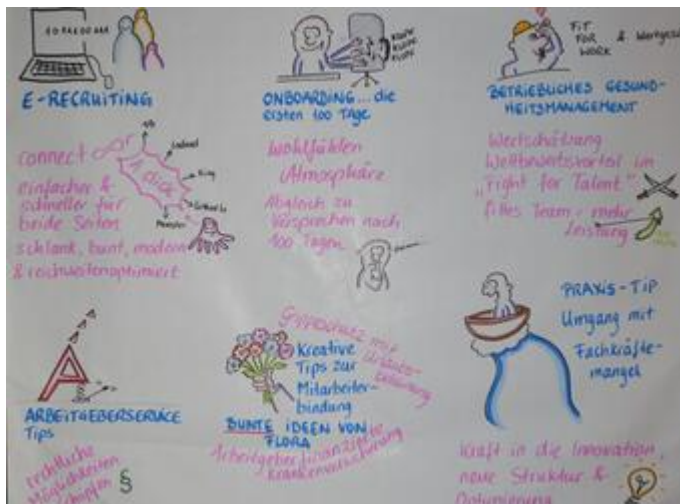 E-RECRUITING
connect
einfacher &
schneller für
beide Seiten
schlank, bunt, modern
& reichweitenoptimiert
1 Klick
Xing
Monster
ONBOARDING... die
ersten 100 TAGE
Wohlfühlen
Atmosphäre
Abgleich zu
Versprechen nach
100 Tagen
FIT
FOR
WORK &
BETRIEBLICHES GESUND-
HEITSMANAGEMENT
Wertschätzung
Wettbewerbsvorteil im
"Fight for Talent"
fittes Team = mehr
Leistung
A
ARBEITGEBERSERVICE
Tips
rechtliche
Möglichkeiten
§
Kreative
Tips zur
Mitarbeiter-
bindung
BUNTE IDEEN VON
FLORA
Arbeitgeberfinanzierte
Krankenversicherung
PRAXIS-TIP
Umgang mit
Fachkräfte-
mangel
Kraft in die Innovation,
neue Struktur &
Optimierung